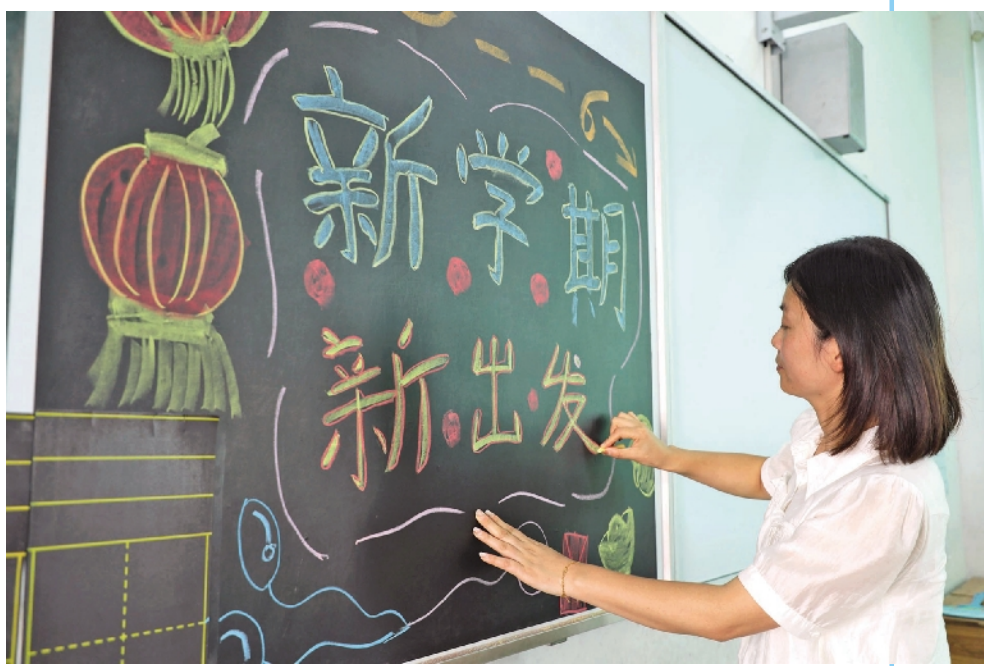 新学期
新出发